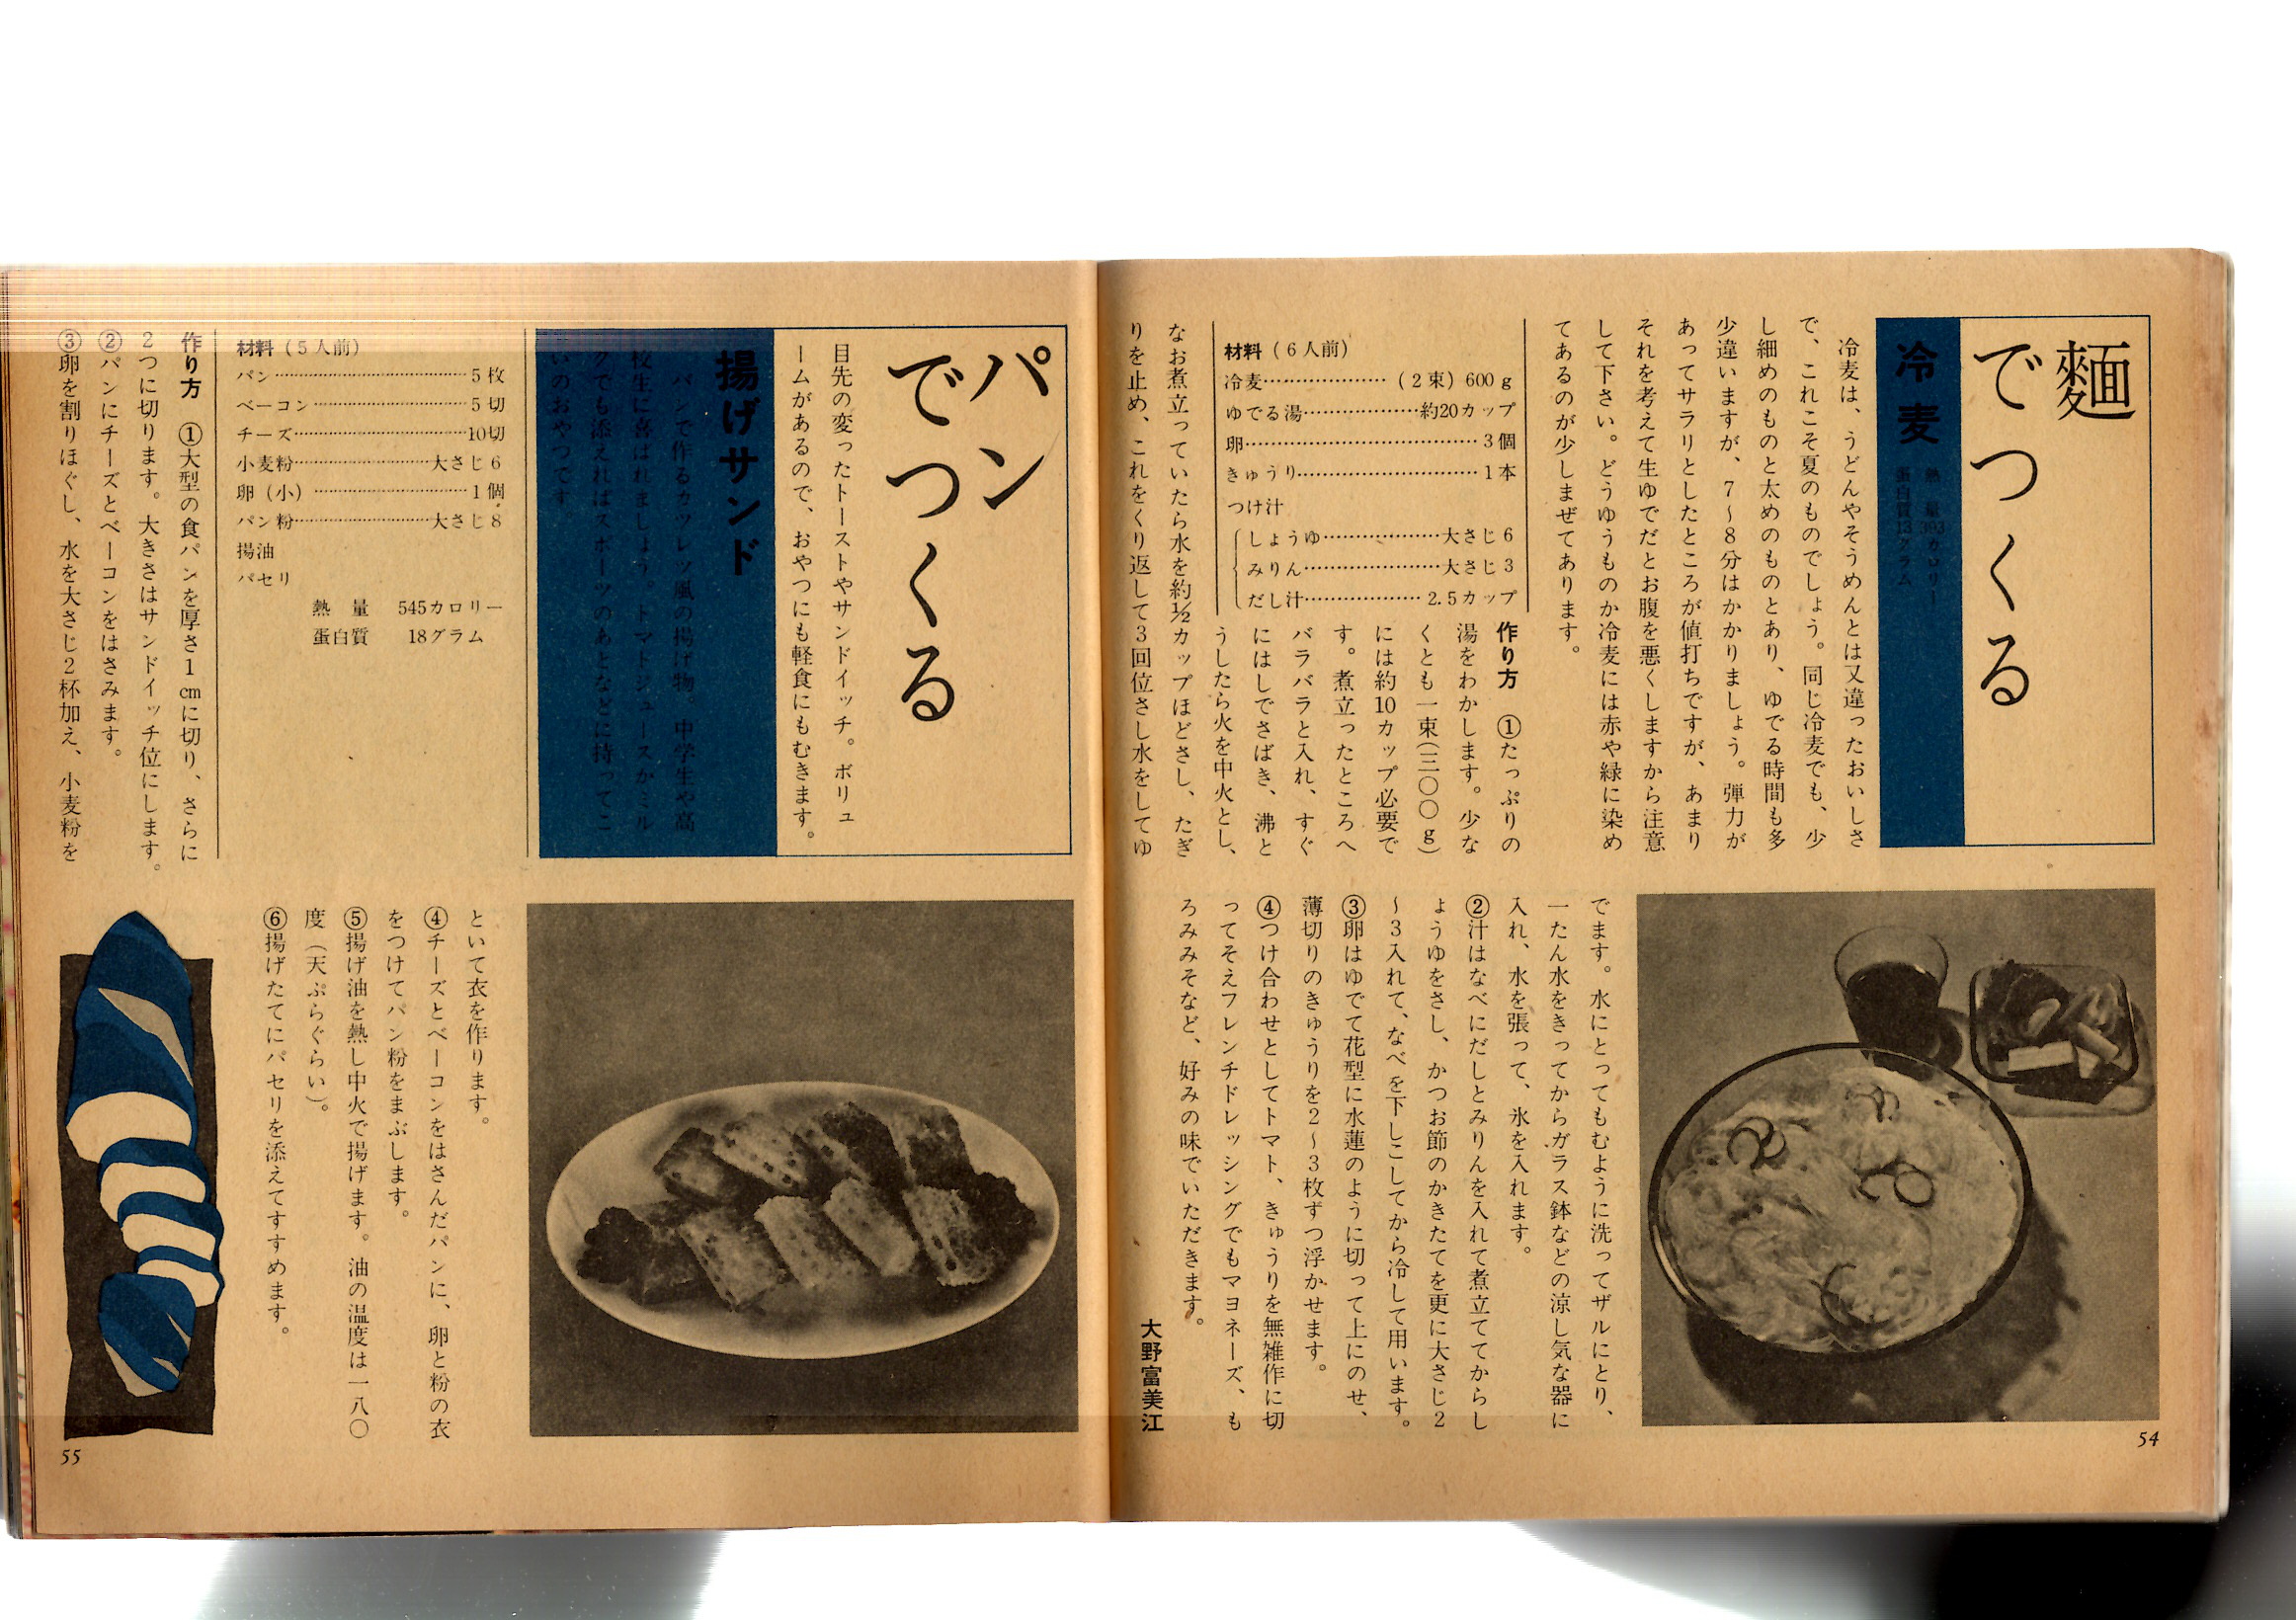 麺
でつくる
冷麦
熱　量 393カロリー
蛋白質 13グラム
冷麦は、うどんやそうめんとは又違ったおいしさ
で、これこそ夏のものでしょう。同じ冷麦でも、少
し細めのものと太めのものとあり、ゆでる時間も多
少違いますが、7〜8分はかかりましょう。弾力が
あってサラリとしたところが値打ちですが、あまり
それを考えて生ゆでだとお腹を悪くしますから注意
して下さい。どうゆうものか冷麦には赤や緑に染め
てあるのが少しまぜてあります。
材料（6人前）
冷麦……………（2束）600g
ゆでる湯……………約20カップ
卵……………3個
きゅうり……………1本
つけ汁
しょうゆ……………大さじ6
みりん……………大さじ3
だし汁……………2.5カップ
作り方　①たっぷりの
湯をわかします。少な
くとも一束(三〇〇g)
には約10カップ必要で
す。煮立ったところへ
バラバラと入れ、すぐ
にはしでさばき、沸と
うしたら火を中火とし、
なお煮立っていたら水を約½カップほどさし、たぎ
りを止め、これをくり返して3回位さし水をしてゆ
でます。水にとってもむように洗ってザルにとり、
一たん水をきってからガラス鉢などの涼し気な器に
入れ、水を張って、氷を入れます。
②汁はなべにだしとみりんを入れて煮立ててからし
ょうゆをさし、かつお節のかきたてを更に大さじ2
〜3入れて、なべを下しこしてから冷して用います。
③卵はゆでて花型に水蓮のように切って上にのせ、
薄切りのきゅうりを2〜3枚ずつ浮かせます。
④つけ合わせとしてトマト、きゅうりを無雑作に切
ってそえフレンチドレッシングでもマヨネーズ、も
ろみみそなど、好みの味でいただきます。
大野富美江
54
パン
でつくる
目先の変ったトーストやサンドイッチ。ボリュ
ームがあるので、おやつにも軽食にもむきます。
揚げサンド
パンで作るカツレツ風の揚げ物。中学生や高
校生に喜ばれましょう。トマトジュースかミル
クでも添えればスポーツのあとなどに持ってこ
いのおやつです。
材料（5人前）
パン……………5枚
ベーコン……………5切
チーズ……………10切
小麦粉……………大さじ6
卵（小）……………1個
パン粉……………大さじ8
揚油
パセリ
熱　量　545カロリー
蛋白質　18グラム
作り方　①大型の食パンを厚さ1cmに切り、さらに
2つに切ります。大きさはサンドイッチ位にします。
②パンにチーズとベーコンをはさみます。
③卵を割りほぐし、水を大さじ2杯加え、小麦粉を
といて衣を作ります。
④チーズとベーコンをはさんだパンに、卵と粉の衣
をつけてパン粉をまぶします。
⑤揚げ油を熱し中火で揚げます。油の温度は一八〇
度（天ぷらぐらい）。
⑥揚げたてにパセリを添えてすすめます。
55